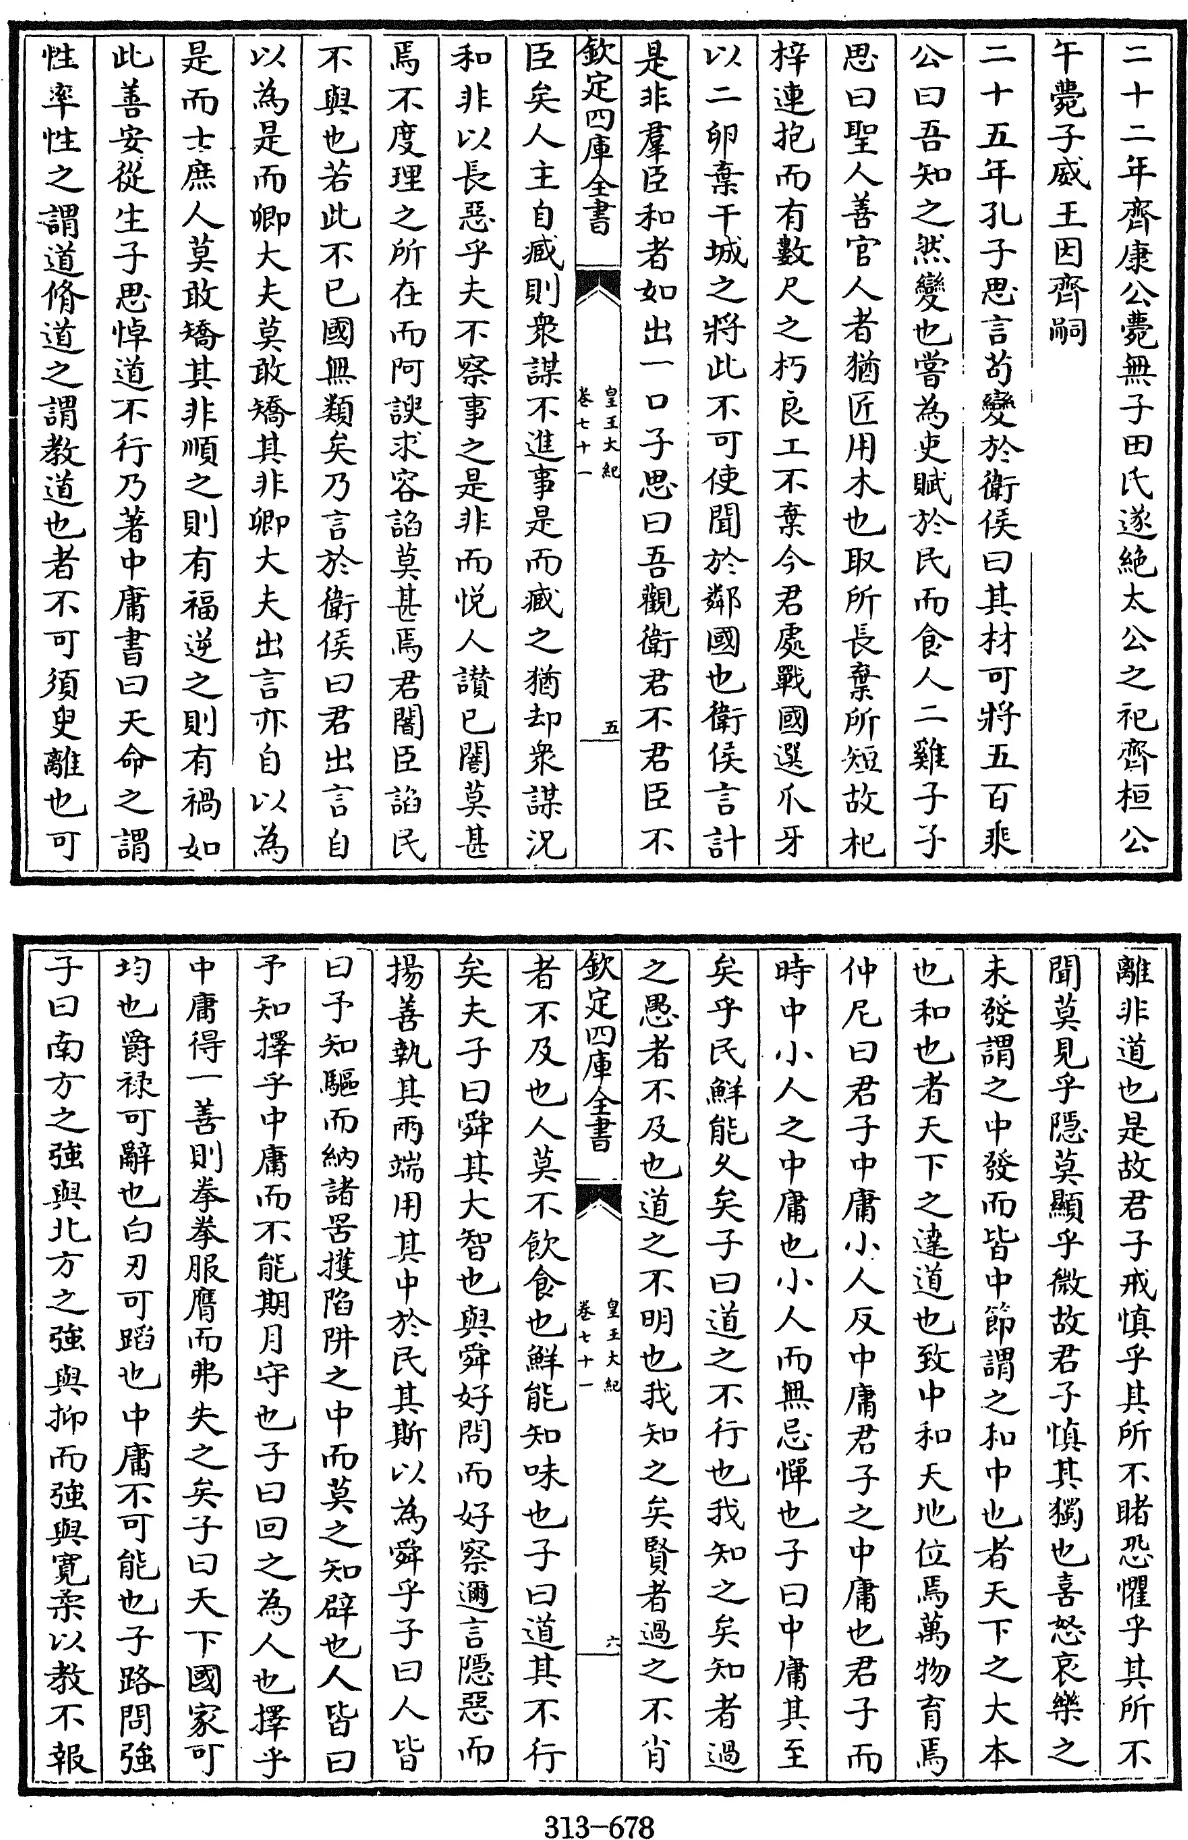 二十二年齊康公薨無子田氏遂絶太公之祀齊桓公
午薨子威王因齊嗣
二十五年孔子思言茍變於衛侯曰其材可將五百乘
公曰吾知之然變也嘗為吏賦於民而食人二雞子子
思曰聖人善官人者猶匠用木也取所長棄所短故杞
梓連抱而有數尺之朽良工不棄今君處戰國選爪牙
以二卵棄干城之將此不可使聞於鄰國也衛侯言計
是非羣臣和者如出一口子思曰吾觀衛君不君臣不
欽定四庫全書
皇王大紀
卷七十一
五
臣矣人主自臧則衆謀不進事是而臧之猶却衆謀況
和非以長惡乎夫不察事之是非而悦人讃已闇莫甚
焉不度理之所在而阿諛求容諂莫甚焉君闇臣諂民
不與也若此不已國無類矣乃言於衛侯曰君出言自
以為是而卿大夫莫敢矯其非卿大夫出言亦自以為
是而士庶人莫敢矯其非順之則有福逆之則有禍如
此善安從生子思悼道不行乃著中庸書曰天命之謂
性率性之謂道脩道之謂教道也者不可須臾離也可
離非道也是故君子戒慎乎其所不睹恐懼乎其所不
聞莫見乎隱莫顯乎微故君子慎其獨也喜怒哀樂之
未發謂之中發而皆中節謂之和中也者天下之大本
也和也者天下之達道也致中和天地位焉萬物育焉
仲尼曰君子中庸小人反中庸君子之中庸也君子而
時中小人之中庸也小人而無忌憚也子曰中庸其至
矣乎民鮮能久矣子曰道之不行也我知之矣知者過
之愚者不及也道之不明也我知之矣賢者過之不肖
欽定四庫全書
皇王大紀
卷七十一
六
者不及也人莫不飲食也鮮能知味也子曰道其不行
矣夫子曰舜其大智也與舜好問而好察邇言隱惡而
揚善執其兩端用其中於民其斯以為舜乎子曰人皆
曰予知驅而納諸罟擭陷阱之中而莫之知辟也人皆曰
予知擇乎中庸而不能期月守也子曰回之為人也擇乎
中庸得一善則拳拳服膺而弗失之矣子曰天下國家可
均也爵禄可辭也白刃可蹈也中庸不可能也子路問強
子曰南方之強與北方之強與抑而強與寛柔以教不報
313-678